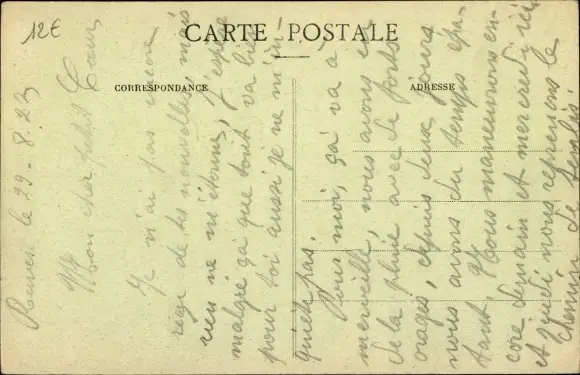 12€
CARTE POSTALE
CORRESPONDANCE
ADRESSE
le 29-8-23
Mon cher petit
Je n'ai pas encore
reçu de tes nouvelles, mais
rien ne m'étonne, j'espère
malgré ça que tout va bien
pour toi aussi je ne m'in-
quiète pas.
Pour moi, ça va à
merveille, nous avons eu
de la pluie avec de forts
orages, depuis deux jours
nous avons du temps épa-
tant. Nous manœuvrons en-
core demain et mercredi ici
et jeudi nous reprenons le
chemin de Senlis.